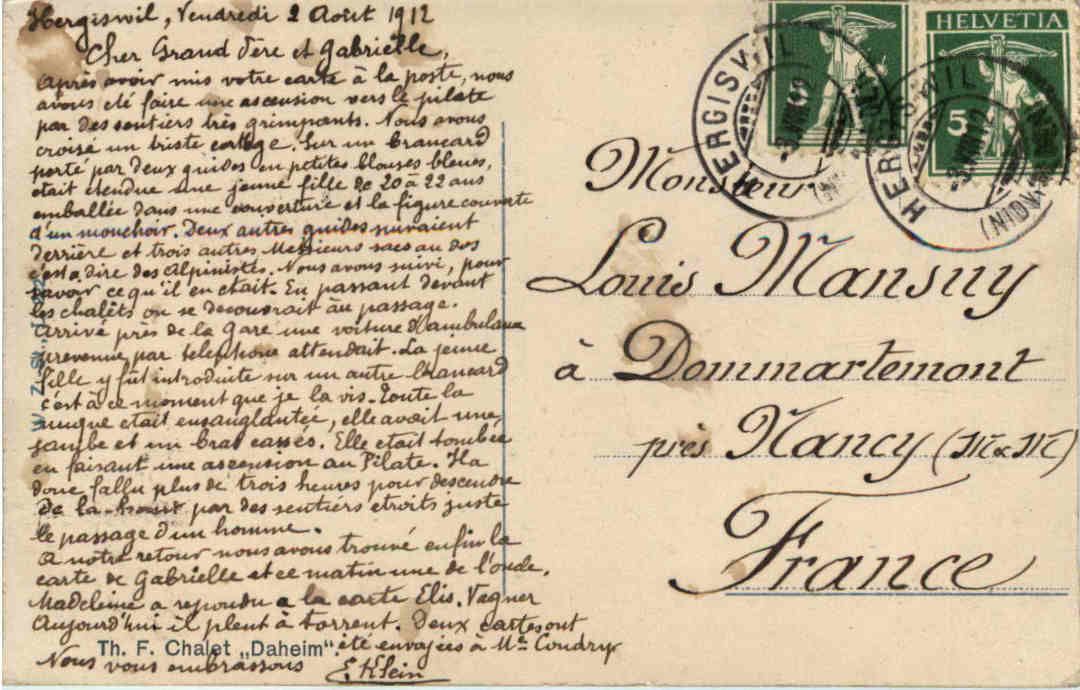 Hergiswil, Vendredi 2 Août 1912
Cher Grand Père et Gabrielle,
Après avoir mis votre carte à la poste, nous
avons été faire une ascension vers le pilate
par des sentiers très grimpants. Nous avons
croisé un triste cortège. Sur un brancard
porté par deux guides en petites blouses bleues,
était étendue une jeune fille de 20 à 22 ans
emballée dans une couverture et la figure couverte
d'un mouchoir. Deux autres guides suivaient
derrière et trois autres Messieurs sacs au dos
c'est à dire des Alpinistes. Nous avons suivi, pour
savoir ce qu'il en était. En passant devant
les chalêts on se decouvrait au passage.
Arrivé près de la Gare une voiture d'ambulance
prevenue par telephone attendait. La jeune
fille y fût introduite sur un autre brancard
c'est à ce moment que je la vis. Toute la
nuque etait ensanglantée, elle avait une
jambe et un bras cassés. Elle etait tombée
en faisant une ascension au Pilate. Il a
donc fallu plus de trois heures pour descendre
de la haut par des sentiers etroits juste
le passage d'un homme.
A notre retour nous avons trouvé enfin la
carte de Gabrielle et ce matin une de l'oncle.
Madeleine a repondu a la carte Elis. Vagner
Aujourd'hui il pleut à torrent. Deux cartes ont
été envoyées à Me Coudry
Nous vous embrassons E. Klein
Th. F. Chalet „Daheim".
HELVETIA
5
HERGISWIL
HERGISWIL
(NIDW.)
Monsieur
Louis Mansuy
à Dommartemont
près Nancy (M & M)
France